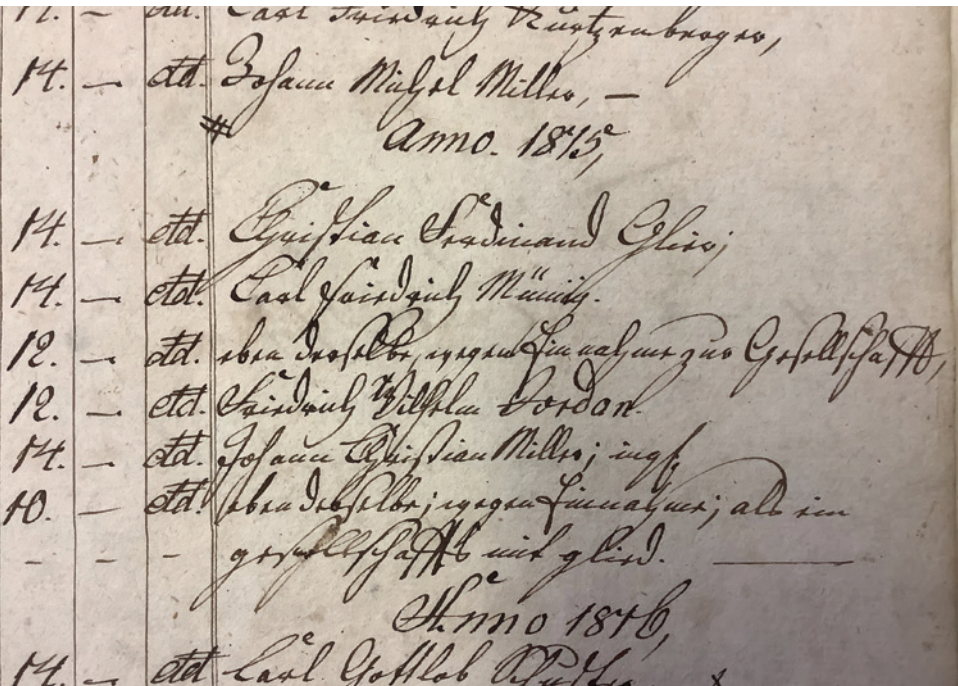 14. — dd. Carl Friedrich Kurtzenberger,
14. — dd. Johann Michel Miller, —
Anno. 1815,
14. — dd. Christian Ferdinand Glier;
14. — dd. Carl Friedrich Münnig.
12. — dd. eben derselbe, wegen Einnahme zur Gesellschafft,
12. — dd. Friedrich Wilhelm Jordan.
14. — dd. Johann Christian Miller; ingl,
10. — dd. eben derselbe; wegen Einnahme; als ein
- - - gesellschaffts mit glied. —
Anno 1816,
14. — dd Carl Gottlob Schuster